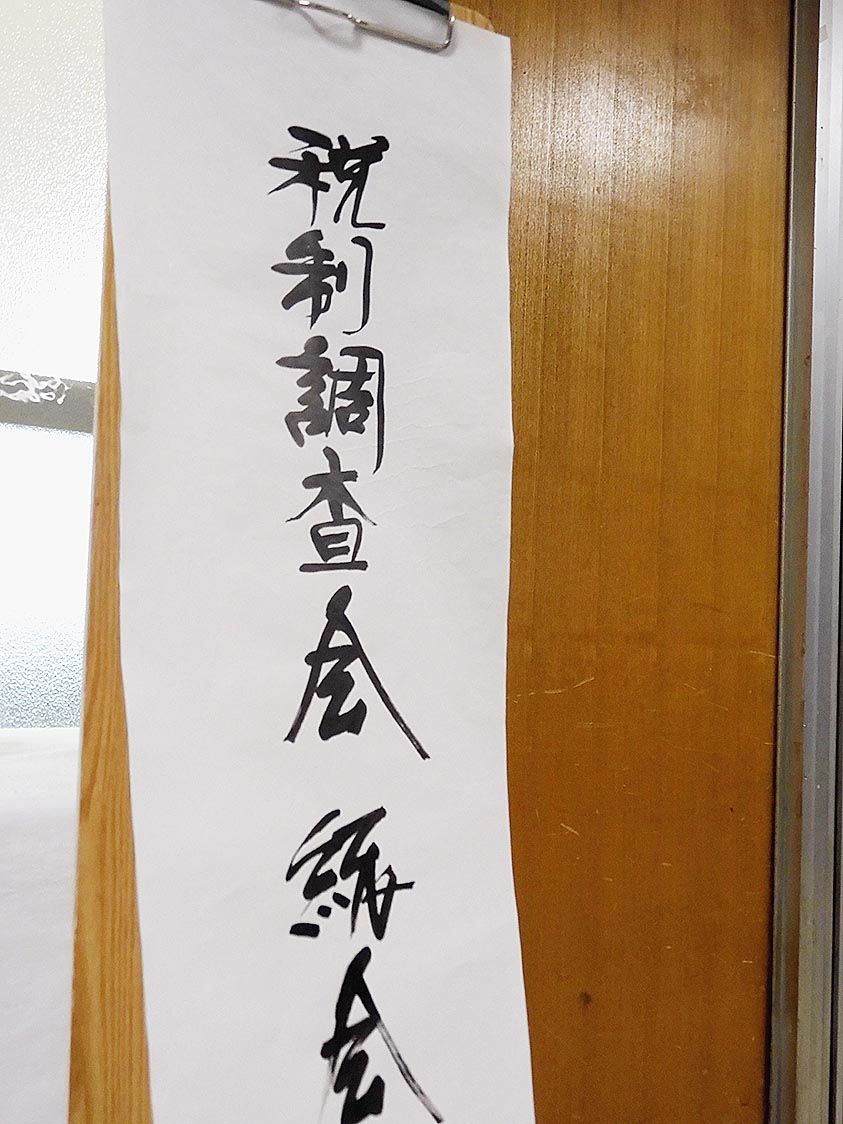 税制調査会 総会